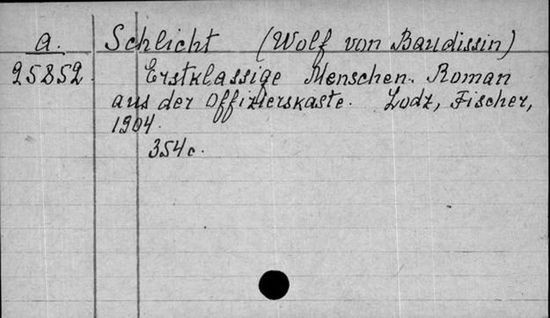 a. Schlicht (Wolf von Baudissin)
25852. Erstklassige Menschen. Roman
aus der Offizierskaste. Lodz, Fischer,
1904.
354 c.